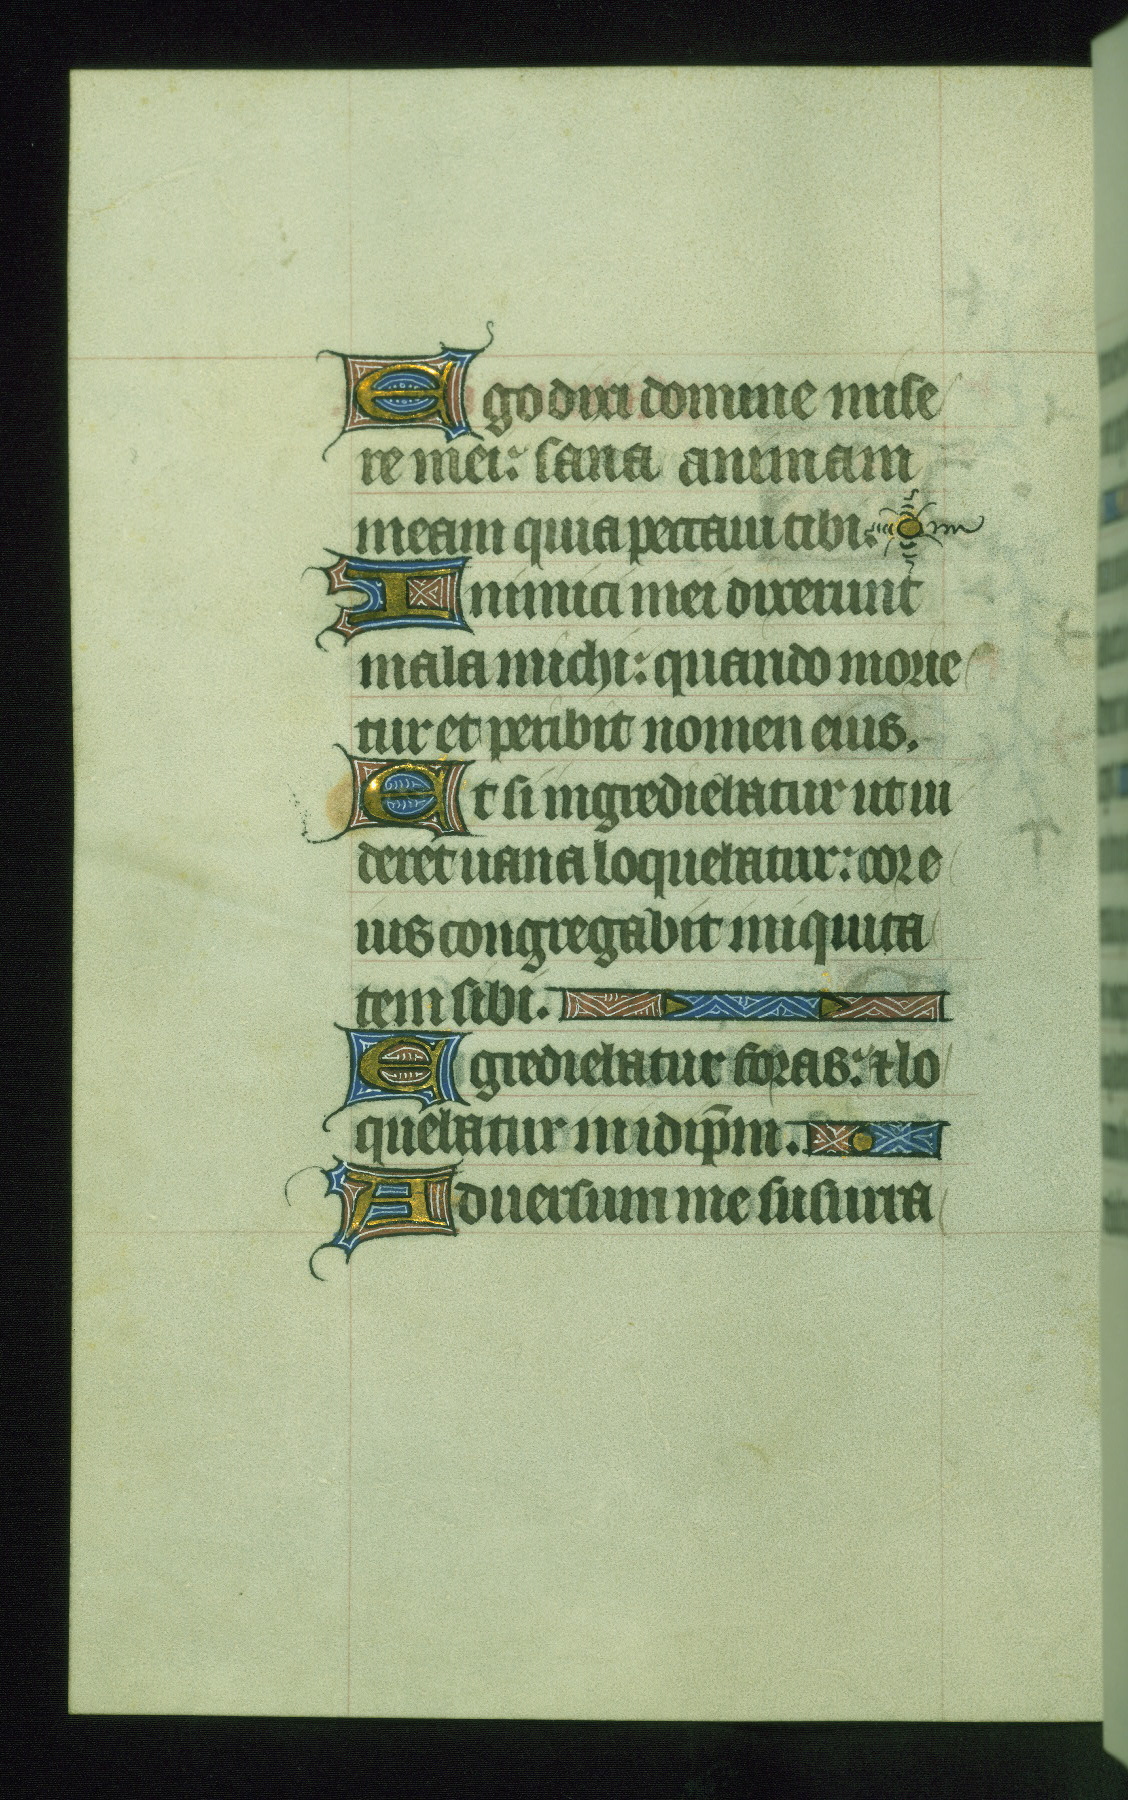 Ego dixi domine mise
re mei: sana animam
meam quia peccaui tibi.
Inimici mei dixerunt
mala michi: quando morie
tur et peribit nomen eius.
Et si ingrediebatur ut ui
deret uana loquebatur: cor e
ius congregabit iniquita
tem sibi.
Egrediebatur foras: ⁊ lo
quebatur in idip̄m.
Aduersum me susurra